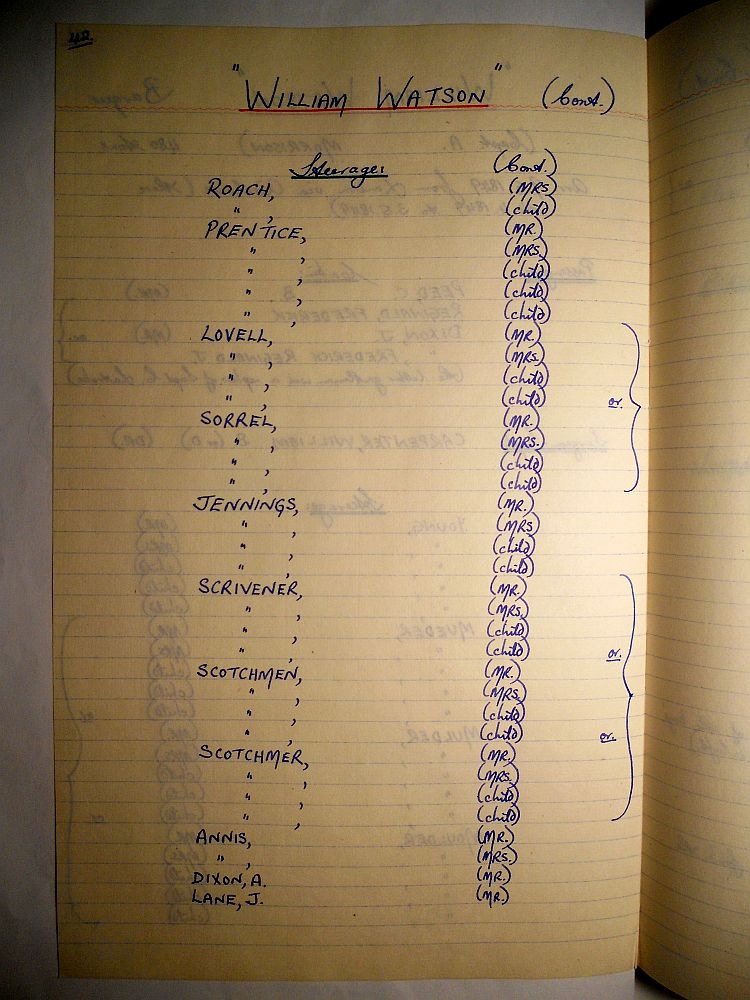 42.
"WILLIAM WATSON" (Cont.)
Steerage: (Cont.)
ROACH, (MRS
" , (child)
PRENTICE, (MR.)
" , (MRS.
" , (child)
" , (child)
" , (child)
LOVELL, (MR.)
" , (MRS.
" , (child)
" , (child) or.
SORREL, (MR.)
" , (MRS.)
" , (child)
" , (child)
JENNINGS, (MR.)
" , (MRS
" , (child)
" , (child)
SCRIVENER, (MR.)
" , (MRS.
" , (child)
" , (child) or.
SCOTCHMEN, (MR.)
" , (MRS.
" , (child)
" , (child) or.
SCOTCHMER, (MR.)
" , (MRS.
" , (child)
" , (child)
ANNIS, (MR.)
" , (MRS.)
DIXON, A. (MR.)
LANE, J. (MR.)